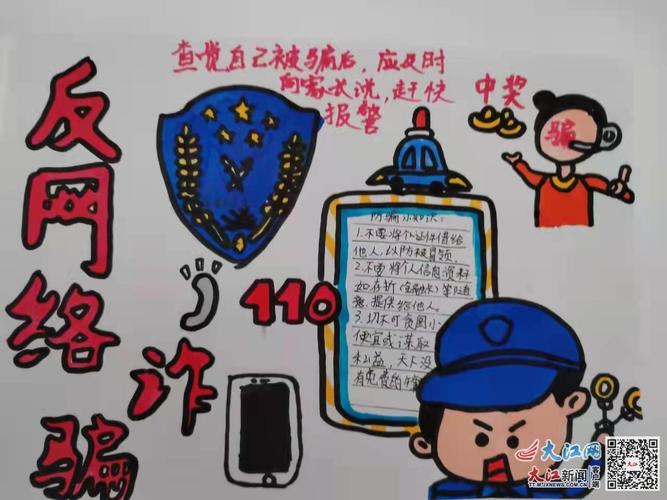 查觉自己被骗后,应及时
向家长说,赶快
报警
中奖
骗
反
网
络
诈
骗
110
防骗小知识:
1.不要将个证件借给
他人,以防被冒领
2.不要将个人信息资料
如存折(金融卡)等随
意,提供给他人。
3.切不可贪图小
便宜或谋取
私益,天下没
有免费的午
大江网
大江新闻 客户端
TT.M.JXNEWS.COM.CN